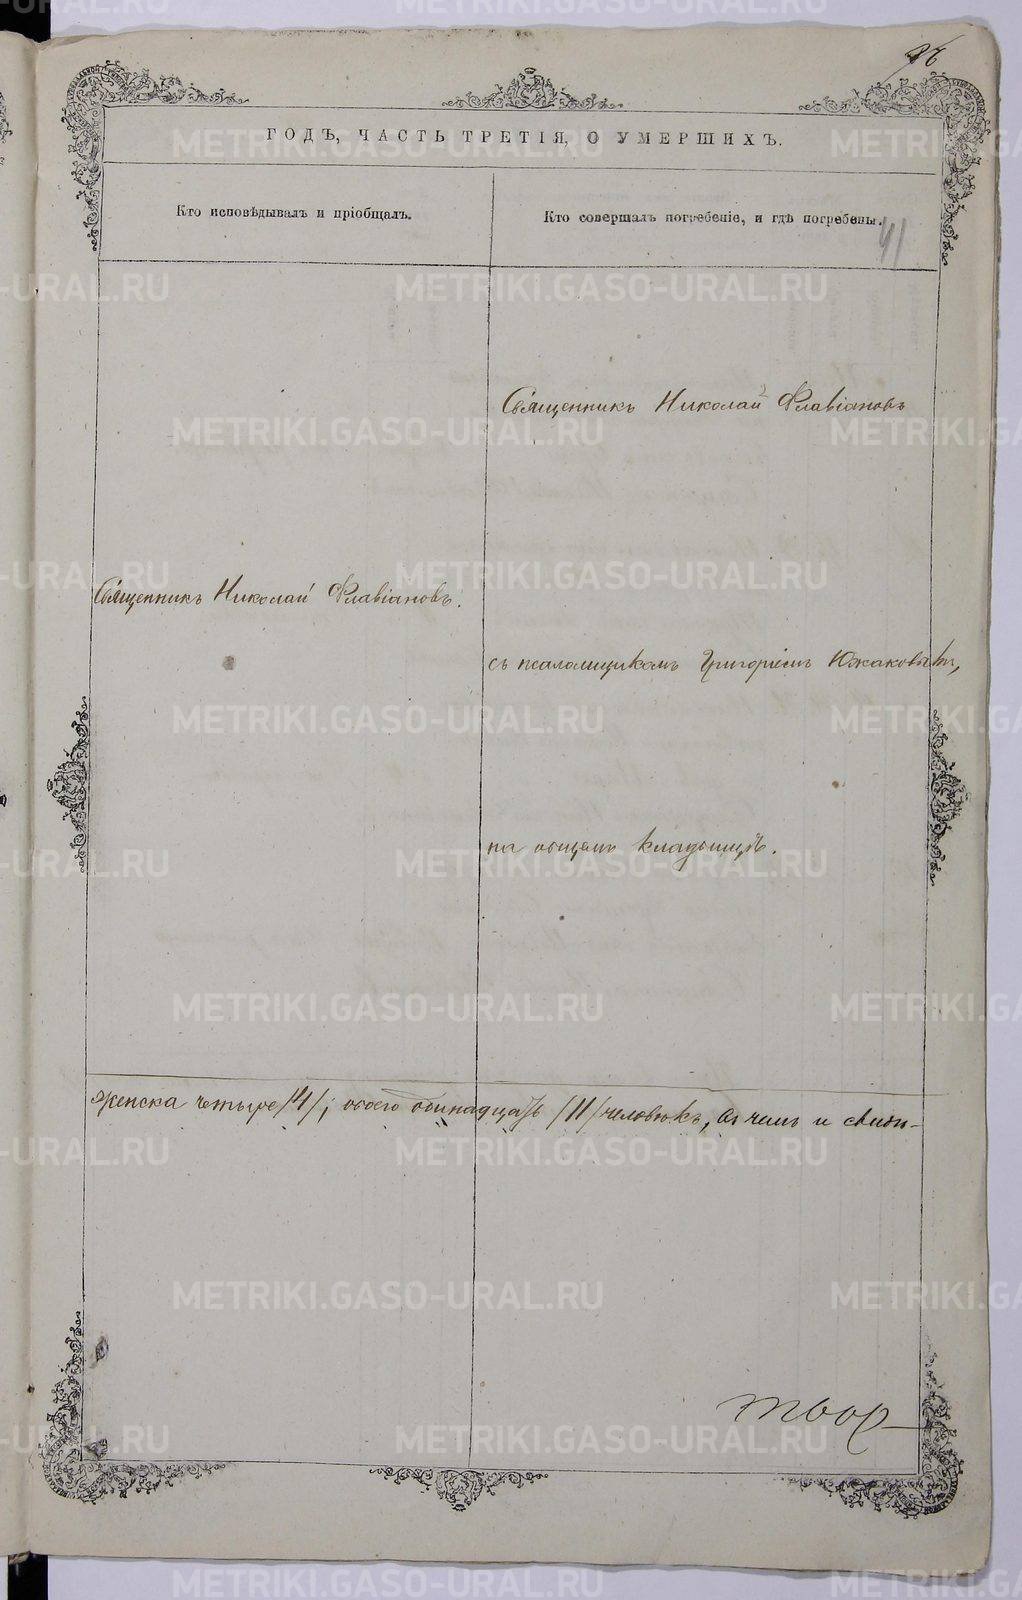 ГОДЪ, ЧАСТЬ ТРЕТІЯ, О УМЕРШИХЪ.
Кто исповѣдывалъ и пріобщалъ.
Кто совершалъ погребеніе, и гдѣ погребены.
41
Священникъ Николай Флавіановъ
Священникъ Николай Флавіановъ.
съ псаломщикомъ Григоріемъ Южаковымъ,
на общемъ кладбищѣ.
женска четыре /4/; обоего одинадцать /11/ человѣкъ, въ чемъ и свидѣ-
METRIKI.GASO-URAL.RU